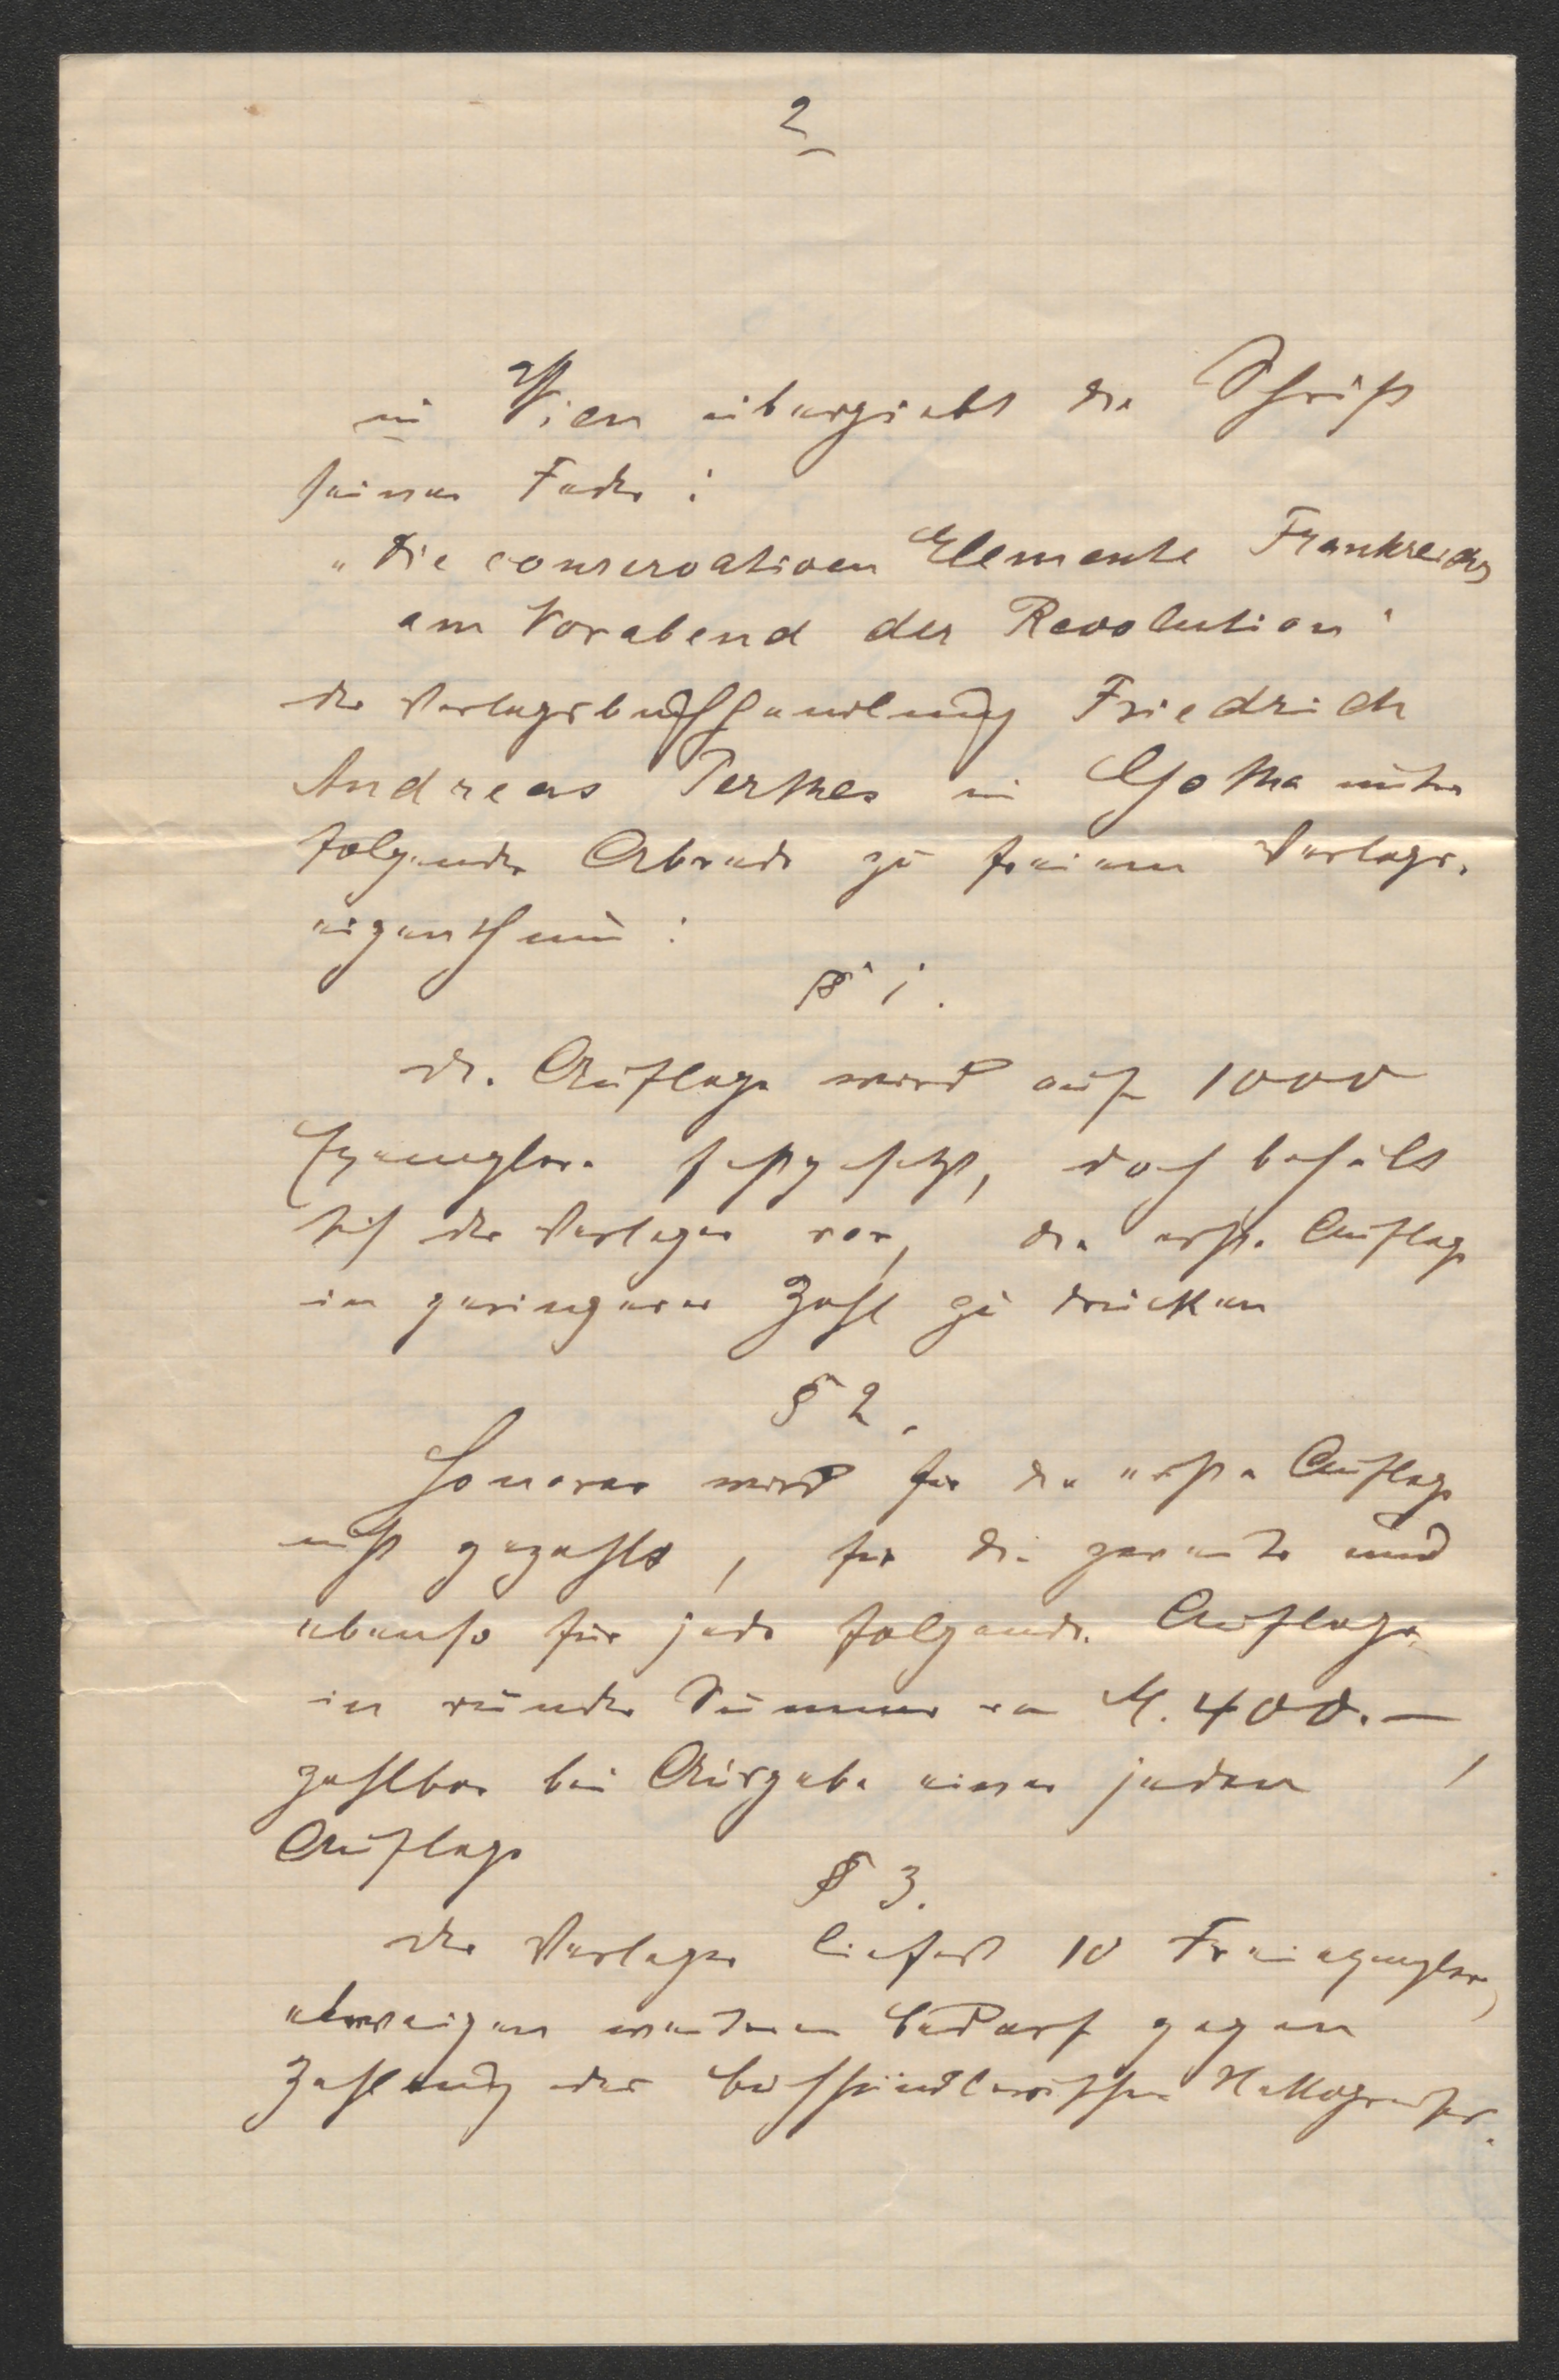 2
in Wien übergiebt die Schrift
seiner Feder:
„Die conservativen Elemente Frankreichs
am Vorabend der Revolution"
der Verlagsbuchhandlung Friedrich
Andreas Perthes in Gotha unter
folgender Abrede zu freiem Verlags-
eigenthum:
§ 1.
Die Auflage wird auf 1000
Exemplare festgesetzt, doch behält
sich der Verleger vor, die erste Auflage
in geringerer Zahl zu drucken
§ 2.
Honorar wird für die erste Auflage
nicht gezahlt, für die zweite und
ebenso für jede folgende Auflage
in runder Summe von M. 400.—
zahlbar bei Ausgabe einer jeden
Auflage
§ 3.
Der Verleger liefert 10 Freiexemplare,
etwaigen weiteren Bedarf gegen
Zahlung des buchhändlerischen Nettopreises.